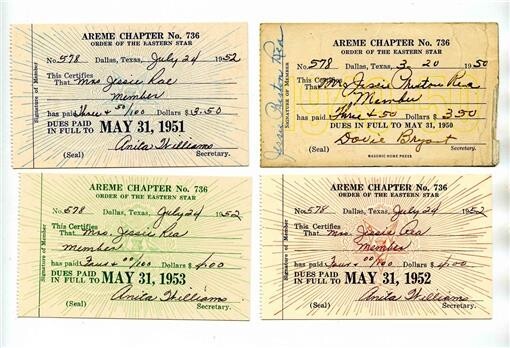 AREME CHAPTER No. 736
ORDER OF THE EASTERN STAR
No. 578 Dallas, Texas, July 24 1952
This Certifies
That Mrs Jessie Rae
member
has paid Three + 50/100 Dollars $ 3.50
DUES PAID
IN FULL TO MAY 31, 1951
Anita Williams
(Seal) Secretary.
Signature of Member
AREME CHAPTER No. 736
ORDER OF THE EASTERN STAR
No. 578 Dallas, Texas, 3-20 1950
This Certifies
That Mrs. Jessie Preston Rea
Member
has paid Three + 50 Dollars $ 3.50
DUES PAID
IN FULL TO MAY 31, 1950
Dovie Bryant
(Seal) Secretary.
MASONIC HOME PRESS
Jessie Preston Rea
SIGNATURE OF MEMBER
AREME CHAPTER No. 736
ORDER OF THE EASTERN STAR
No. 578 Dallas, Texas, July 24 1952
This Certifies
That Mrs. Jessie Rea
member
has paid Four + 00/100 Dollars $ 4.00
DUES PAID
IN FULL TO MAY 31, 1953
Anita Williams
(Seal) Secretary.
Signature of Member
AREME CHAPTER No. 736
ORDER OF THE EASTERN STAR
No. 578 Dallas, Texas, July 24 1952
This Certifies
That Mrs. Jessie Rea
member
has paid Four + 00/100 Dollars $ 4.00
DUES PAID
IN FULL TO MAY 31, 1952
Anita Williams
(Seal) Secretary.
Signature of Member